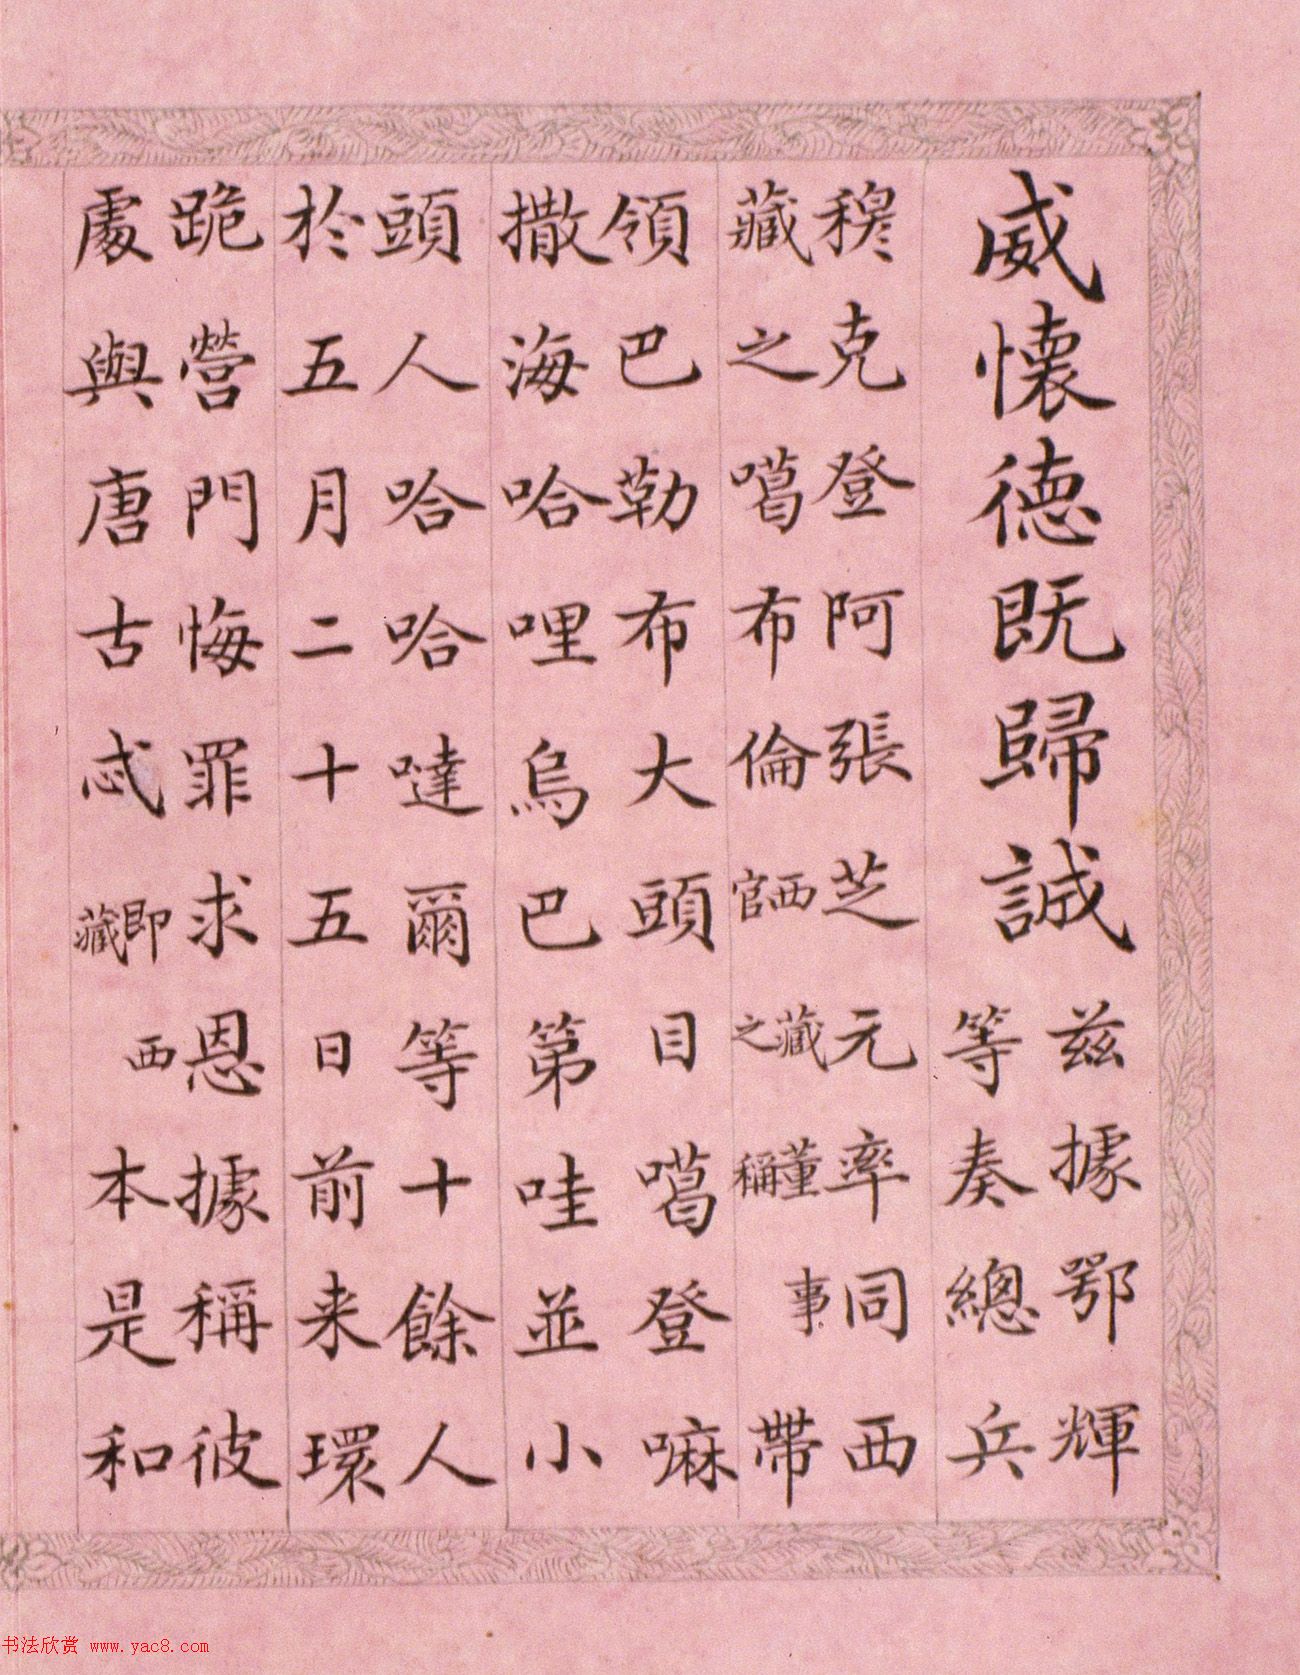 威懷德既歸誠
茲據鄂輝
等奏總兵
穆克登阿張芝元率同西
藏之噶布倫西藏董事官之稱帶
領巴勒布大頭目噶登嘛
撒海哈哩烏巴第哇並小
頭人哈哈噠爾等十餘人
於五月二十五日前来環
跪營門悔罪求恩據稱彼
處與唐古忒即西藏本是和
书法欣赏 www.yac8.com